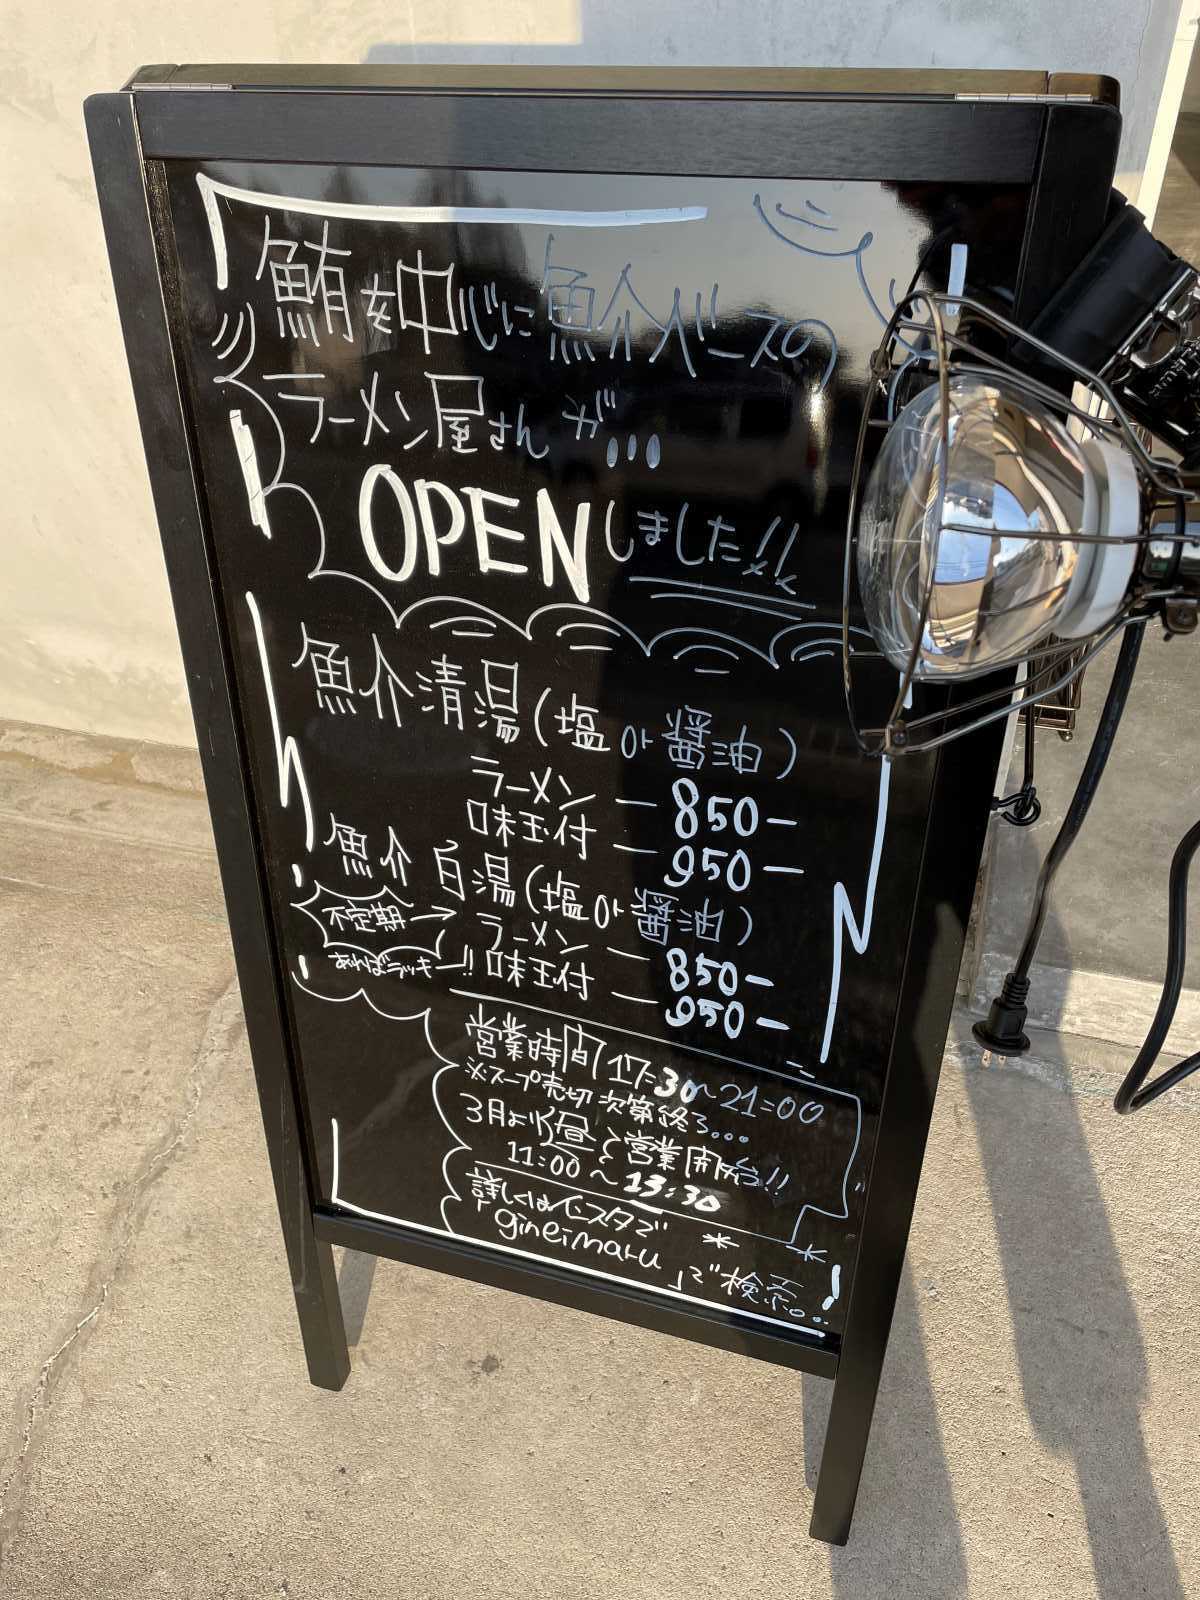 鮪を中心に魚介ベースの
ラーメン屋さんが...
OPENしました!!
魚介清湯(塩or醤油)
ラーメン — 850-
味玉付 — 950-
魚介白湯(塩or醤油)
不定期→
ラーメン — 850-
あればラッキー!!
味玉付 — 950-
営業時間 17:30~21:00
※スープ売切次第終了...
3月より昼も営業開始!!
11:00~13:30
詳しくはインスタで
「gineimaru」で検索...